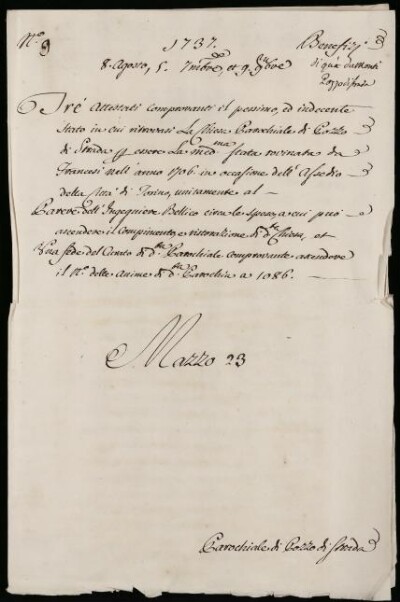 N.° 9
1737.
8. Agosto, 5. 7mbre, et 9. 9bre
Benefizj
di qua da Monti
Pozzo di Strada
Tre Attestati comprovanti il pessimo, ed indecente
stato in cui ritrovasi la Chiesa Parochiale di Pozzo
di Strada p essere la med.ma stata rovinata da
Francesi nell'anno 1706 in occasione dell'Assedio
della Città di Torino, unitamente al
Parere dell'Ingegniere Bellico circa le spese, a cui può
ascendere il compimento, e ristorazione di d.ta Chiesa, et
Una fede del Curato di d.ta Parochiale comprovante ascendere
il N.° delle Anime di d.ta Parochia a 1086.
Mazzo 23
Parochiale di Pozzo di Strada